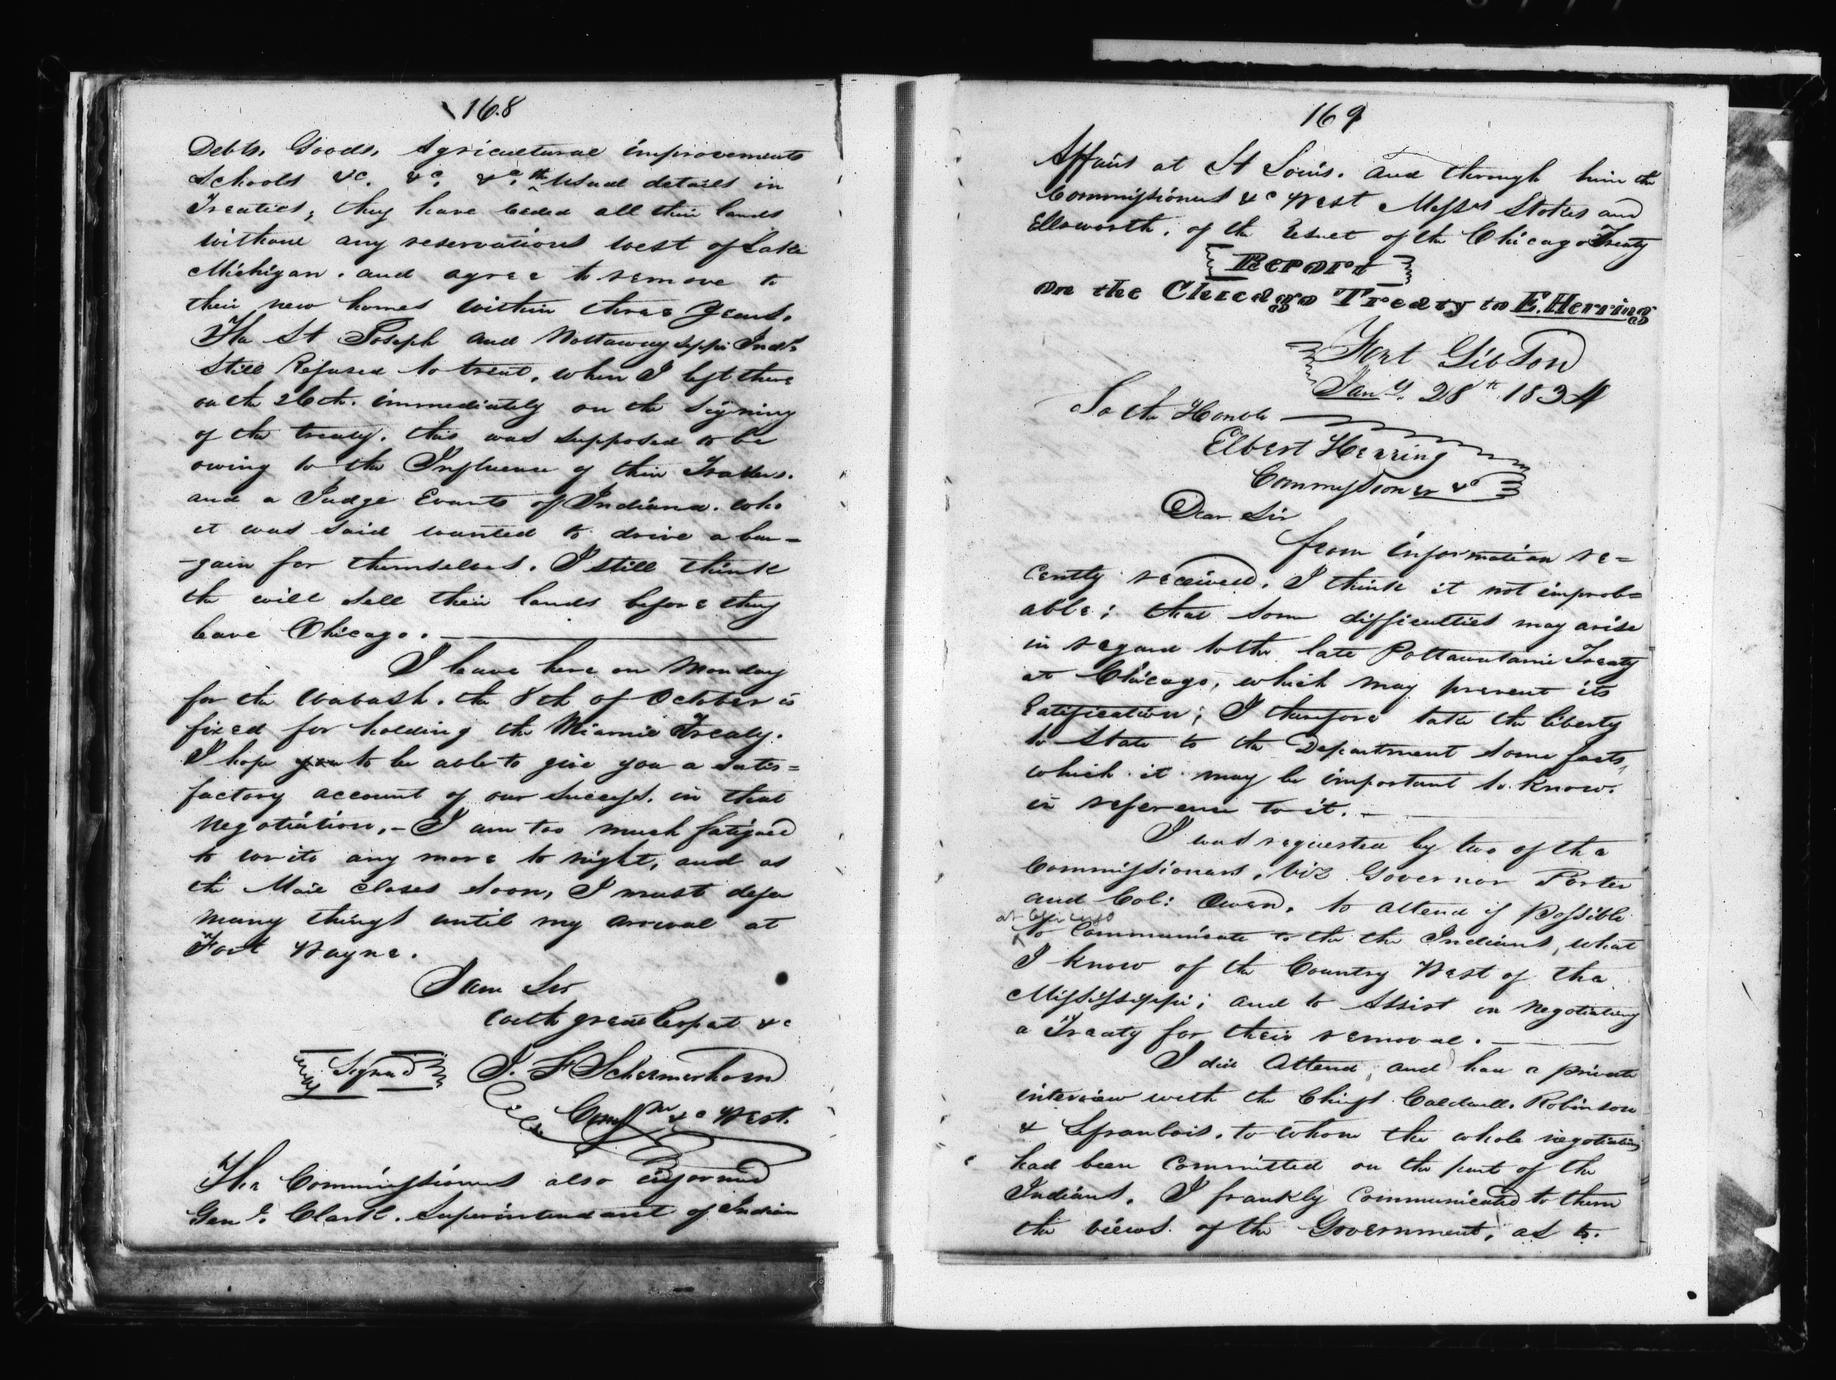 168
Debts, Goods, Agricultural improvements
Schools &c. &c. &c. the usual details in
Treaties, they have Ceded all their lands
without any reservations west of Lake
Michigan. and agree to remove to
their new homes within three Years.
The St Joseph and Nottawaysippi Inds
Still Refused to treat, when I left there
on the 26th. immediately on the Signing
of the treaty. this was supposed to be
owing to the Influence of their Traders.
and a Judge Evarts of Indiana. who
it was said wanted to drive a bar=
-gain for themselves. I still think
the will sell their lands before they
leave Chicago.
I leave here on Monday
for the Wabash. the 8th of October is
fixed for holding the Miamie Treaty.
I hope you to be able to give you a satis=
factory account of our success. in that
Negotiation. - I am too much fatigued
to write any more to night, and as
the Mail closes soon, I must defer
many things until my arrival at
Fort Wayne.
I am Sir
with great Respect &c
Signed J. F Schermerhorn
Comr &c West.
The Commissioners also informed
Genl. Clark. Superintendant of Indian
169
Affairs at St Louis. and through him the
Commissioners &c West Messrs Stokes and
Ellsworth, of the result of the Chicago Treaty
Report
on the Chicago Treaty to E. Herring
Fort Gibson
Jany. 28th 1834
To the Honble
Elbert Herring
Commissioner &c
Dear Sir
from information re=
cently received. I think it not improb=
able; that some difficulties may arise
in regard to the late Pottawatamie Treaty
at Chicago, which may prevent its
Ratification; I therefore take the liberty
to State to the Department some facts,
which it may be important to know.
in reference to it. -
I was requested by two of the
Commissioners, viz Governor Porter
and Col: Owen, to attend if Possible
at Chicago
to Communicate to the the Indians, what
I know of the Country West of the
Mississippi; and to Assist in negotiating
a Treaty for their removal.
I did Attend, and had a private
interview with the Chiefs Caldwell. Robinson
& Lefrantois. to whom the whole negotiation
had been Committed on the part of the
Indians. I frankly Communicated to them
the views of the Government, as to.